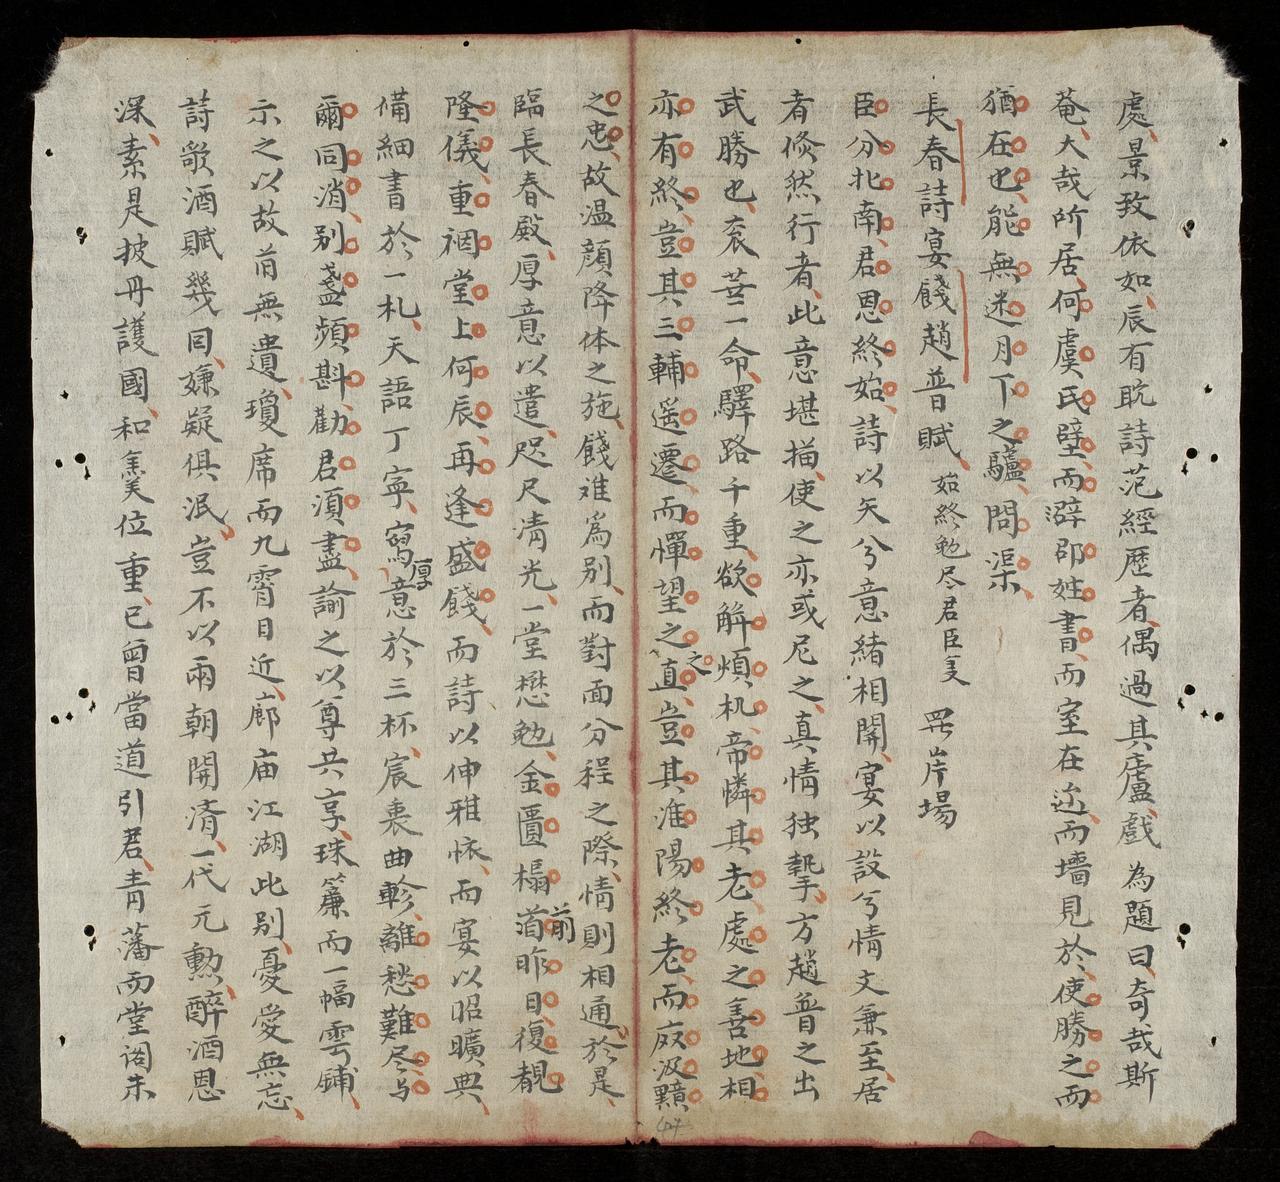 處景致依如辰有耽詩范經歷者偶過其廬戲為題曰奇哉斯
菴大哉所居何虞氏壁而澼邵姓書而室在近而墻見於使勝之而
猶在也能無迷月下之驢問渠
長春詩宴餞趙普賦 始終勉尽君臣
岸場
臣分北南君恩終始詩以矢兮意緒相関宴以設兮情文兼至居
者倐然行者此意堪描使之亦或尼之真情独摯方趙普之出
武勝也衮一命驛路千重欲解煩机帝憐其老處之善地相
亦有終豈其三輔遥遷而憚望之之直豈其淮陽終老而汲黯
之忠故温顔降体之施餞难為别而對面分程之際情則相通於是
臨長春殿厚意以遣咫尺清光一堂懋勉金匱榻前昨日復覩
隆儀重裀堂上何辰再逢盛餞而詩以伸雅懷而宴以昭曠典
備細書於一札天語丁寧寫厚意於三杯宸衷曲軫離愁難尽与
爾同消别盞頻斟勸君須盡諭之以尊共享珠簾而一幅雲鋪
示之以故前無遺瓊席而九霄日近廊庙江湖此别憂愛無忘
詩歌酒賦幾回嫌疑俱泯豈不以兩朝開済一代元勲醉酒恩
深素是披丹護國和羹位重已曾當道引君青藩而堂閤未